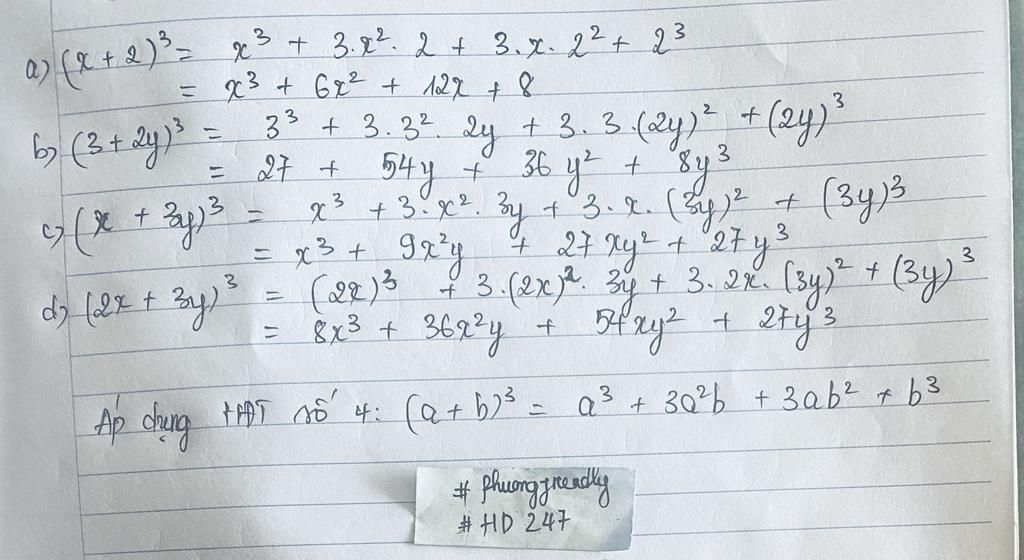 a) (x + 2)³ = x³ + 3.x². 2 + 3. x. 2² + 2³
= x³ + 6x² + 12x + 8
b) (3 + 2y)³ = 3³ + 3.3². 2y + 3. 3.(2y)² + (2y)³
= 27 + 54y + 36y² + 8y³
c) (x + 3y)³ = x³ + 3.x². 3y + 3.x.(3y)² + (3y)³
= x³ + 9x²y + 27xy² + 27y³
d) (2x + 3y)³ = (2x)³ + 3.(2x)². 3y + 3. 2x. (3y)² + (3y)³
= 8x³ + 36x²y + 54xy² + 27y³
Áp dụng HĐT số 4: (a + b)³ = a³ + 3a²b + 3ab² + b³
# phuongfrendly
# HD 247